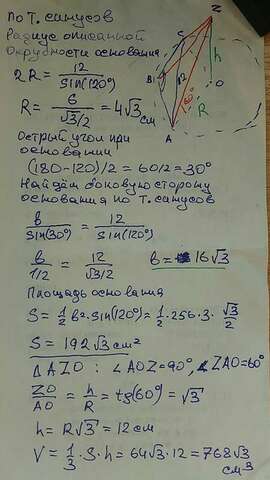 По Т. синусов
Радиус описанной
Окружности основания
2R = 12 / sin(120°)
R = 6 / √3/2 = 4√3 см
Острый угол при
основании
(180-120)/2 = 60/2 = 30°
Найдём боковую сторону
основания по т. синусов
b / sin(30°) = 12 / sin(120°)
b / 1/2 = 12 / √3/2   b = 16√3
Площадь основания
S = 1/2 b² sin(120°) = 1/2 · 256 · 3 · √3/2
S = 192√3 см²
△AZO : ∠AOZ = 90°, ∠ZAO = 60°
ZO/AO = h/R = tg(60°) = √3
h = R√3 = 12 см
V = 1/3 · S · h = 64√3 · 12 = 768√3 см³
Z
C
B
12
h
O
60°
R
A